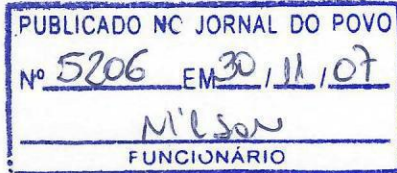 PUBLICADO NO JORNAL DO POVO
Nº 5206 EM 30 / 11 / 07
Nilson
FUNCIONÁRIO